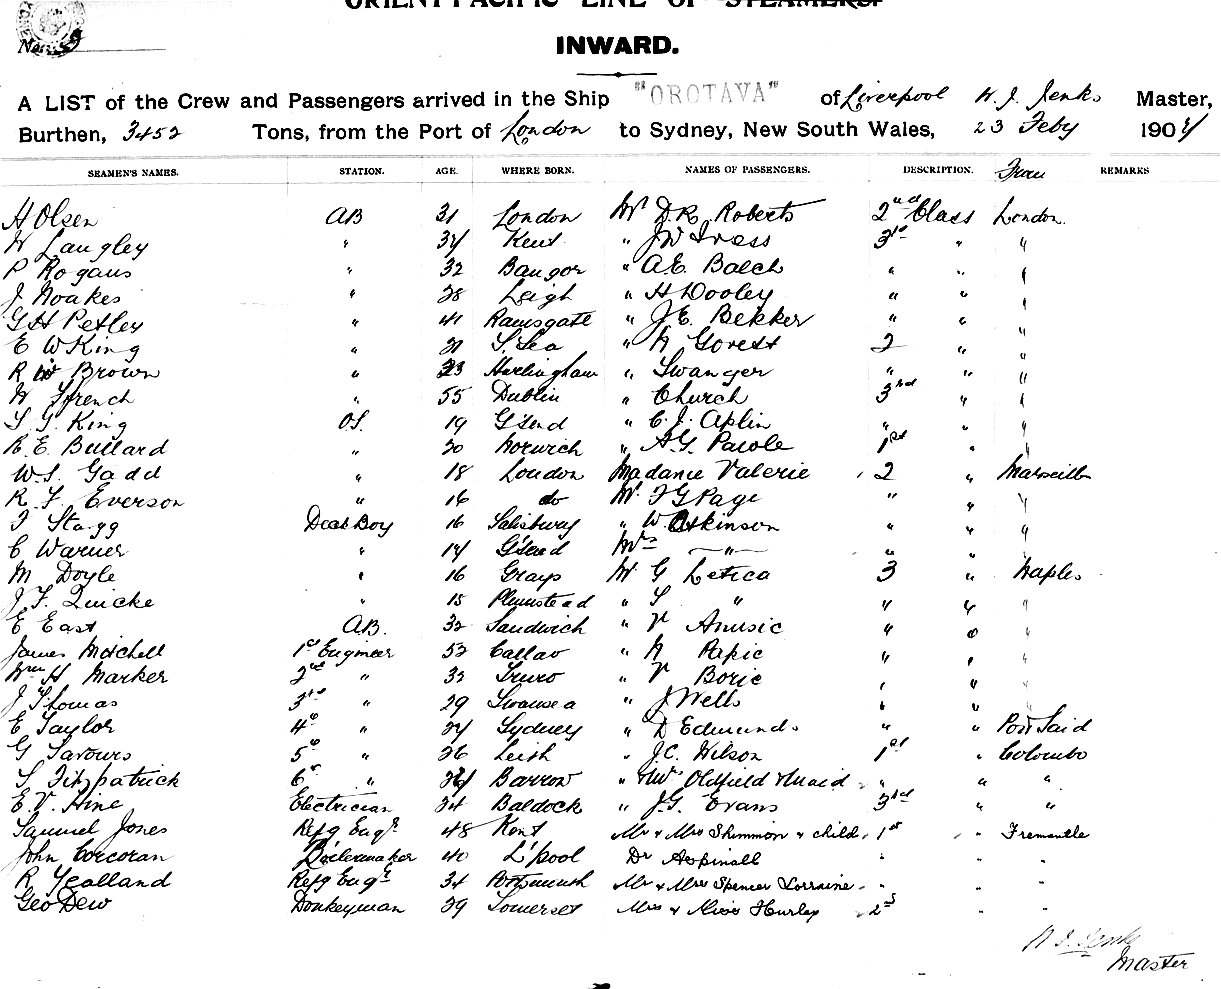 ORIENT-PACIFIC LINE OF STEAMERS.
INWARD.
A LIST of the Crew and Passengers arrived in the Ship "OROTAVA" of Liverpool H. J. Jenks Master,
Burthen, 3452 Tons, from the Port of London to Sydney, New South Wales, 23 Feby 1904
SEAMEN'S NAMES. STATION. AGE. WHERE BORN. NAMES OF PASSENGERS. DESCRIPTION. From REMARKS
H Olsen AB 31 London Mr D.R. Roberts 2nd Class London
W Langley " 34 Kent " J W Iress 3rd " "
P Rogans " 32 Bangor " A.E. Balch " " "
J Noakes " 28 Leigh " H Dooley " " "
G H Petley " 41 Ramsgate " J.E. Bekker " " "
E W King " 21 S. Sea " N Gorest 2 " "
R W Brown " 23 Harlingham " Swanger " " "
W Ffrench " 55 Dublin " Church 3rd " "
S G King OS. 19 G'send " C. J. Aplin " " "
R E Bullard " 20 Norwich " A.G. Pacole 1st " "
W.S. Gadd " 18 London Madame Valerie 2 " Marseilles
R F Everson " 16 do Mr F G Page " " "
F Stagg Deck Boy 16 Salisbury " W Atkinson " " "
C Warner " 14 G'send Mrs " " " "
M Doyle " 16 Grays Mr G Letica 3 " Naples
J. F. Quicke " 15 Plumstead " S " " " "
E East AB. 32 Sandwich " V Anusic " " "
James Mitchell 1st Engineer 52 Callao " N Papic " " "
Wm H Marker 2nd " 32 Truro " V Boric " " "
J Thomas 3rd " 29 Swansea " J Wells " " "
E Taylor 4th " 24 Sydney " D Edmunds " " Port Said
G Savours 5th " 26 Leith " J.C. Wilson 1st " Colombo
S Fitzpatrick 6th " 24 Barrow " & Mrs Oldfield & maid " " "
E. V. Hine Electrician 34 Baldock " J.G. Evans 3rd " "
Samuel Jones Refg Engr 48 Kent Mr & Mrs Shimmon & child 1st " Fremantle
John Corcoran Boilermaker 40 L'pool Dr Aspinall " " "
R Yealland Refg Engr 34 Portsmouth Mr & Mrs Spencer Lorraine " " "
Geo Dew Donkeyman 29 Somerset Mrs & Miss Hurley 2nd " "
H. J. Jenks
Master